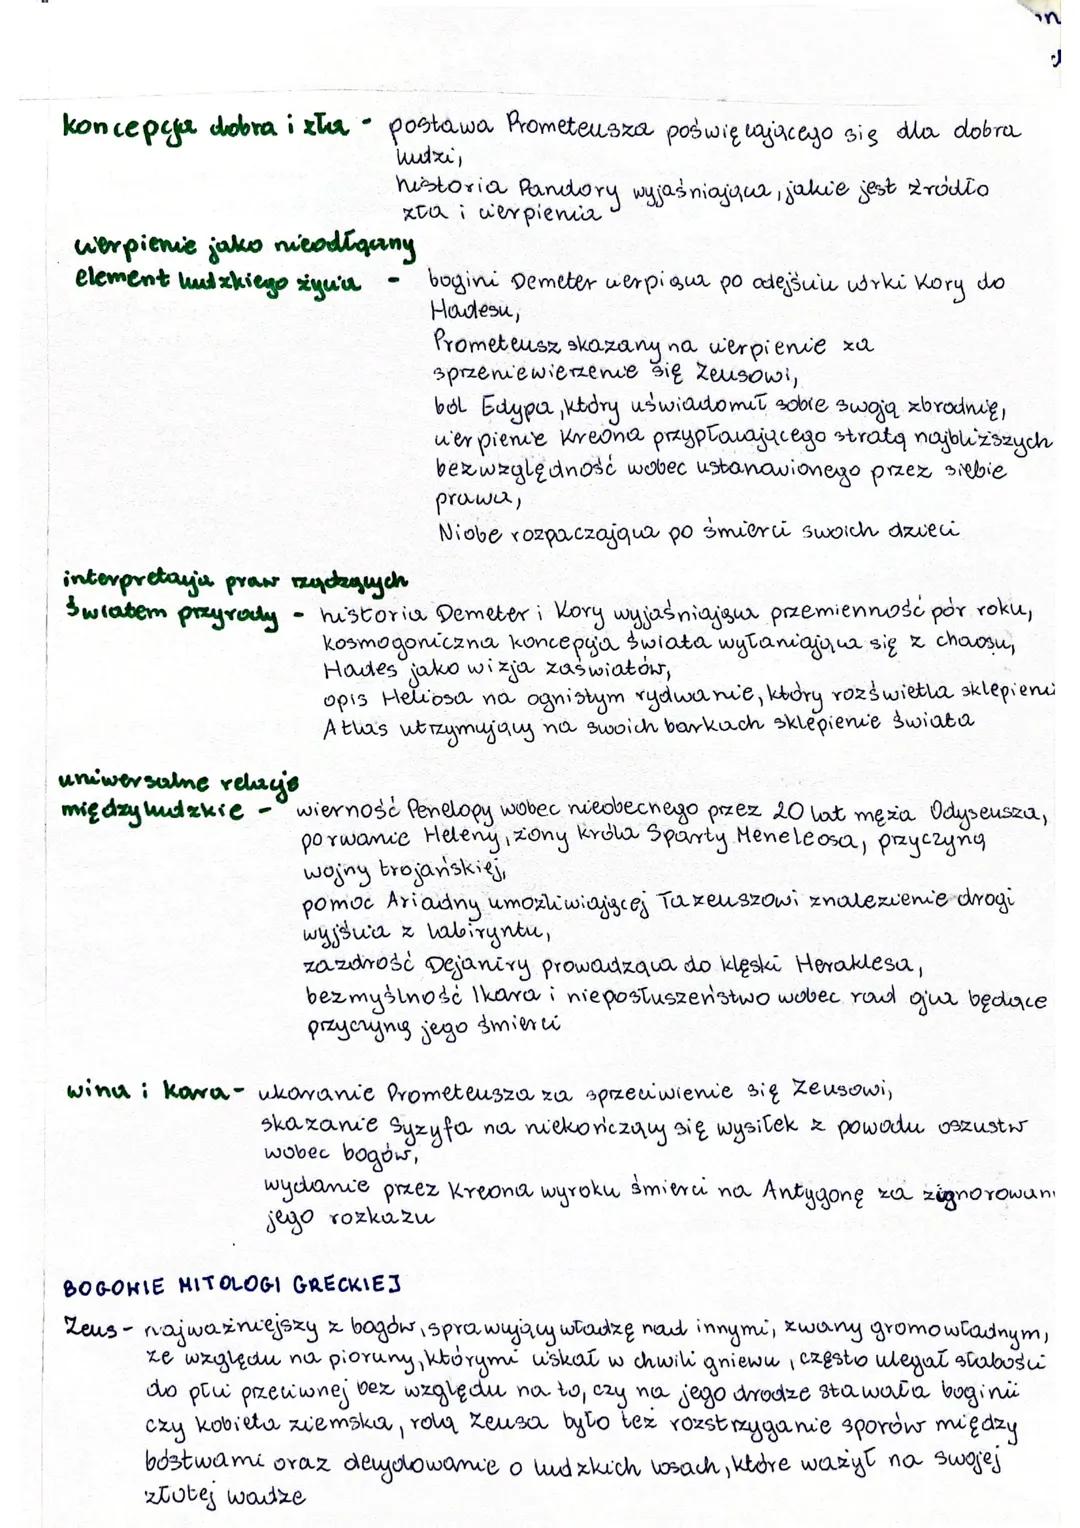 koncepcja dobra i zła - postawa Prometeusza poświęcającego się dla dobra
ludzi,
historia Pandory wyjaśniająca, jakie jest źródło
zła i cierpienia
cierpienie jako nieodłączny
element ludzkiego życia - bogini Demeter cierpiąca po odejściu córki Kory do
Hadesu,
Prometeusz skazany na cierpienie za
sprzeniewierzenie się Zeusowi,
ból Edypa, który uświadomił sobie swoją zbrodnię,
cierpienie Kreona przypłacającego stratą najbliższych
bezwzględność wobec ustanowionego przez siebie
prawa,
Niobe rozpaczająca po śmierci swoich dzieci
interpretacja praw rządzących
światem przyrody - historia Demeter i Kory wyjaśniająca przemienność pór roku,
kosmogoniczna koncepcja świata wyłaniająca się z chaosu,
Hades jako wizja zaświatów,
opis Heliosa na ognistym rydwanie, który rozświetla sklepieni
Atlas utrzymujący na swoich barkach sklepienie świata
uniwersalne relacje
międzyludzkie - wierność Penelopy wobec nieobecnego przez 20 lat męża Odyseusza,
porwanie Heleny, żony króla Sparty Meneleosa, przyczyną
wojny trojańskiej,
pomoc Ariadny umożliwiającej Tazeuszowi znalezienie drogi
wyjścia z labiryntu,
zazdrość Dejaniry prowadząca do klęski Heraklesa,
bezmyślność Ikara i nieposłuszeństwo wobec rad ojca będące
przyczyną jego śmierci
wina i kara - ukaranie Prometeusza za sprzeciwienie się Zeusowi,
skazanie Syzyfa na niekończący się wysiłek z powodu oszustw
wobec bogów,
wydanie przez Kreona wyroku śmierci na Antygonę za zignorowani
jego rozkazu
BOGOWIE MITOLOGI GRECKIEJ
Zeus - najważniejszy z bogów, sprawujący władzę nad innymi, zwany gromowładnym,
ze względu na pioruny, którymi ciskał w chwili gniewu, często ulegał słabości
do płci przeciwnej bez względu na to, czy na jego drodze stawała bogini
czy kobieta ziemska, rolą Zeusa było też rozstrzyganie sporów między
bóstwami oraz decydowanie o ludzkich losach, które ważył na swojej
złotej wadze